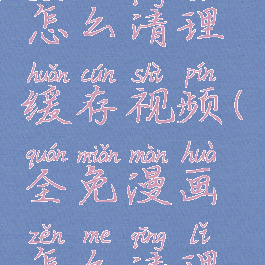 怎么清理
huǎn cún shì pín
缓存视频(
quán miǎn màn huà
全免漫画
zěn me qīng lǐ